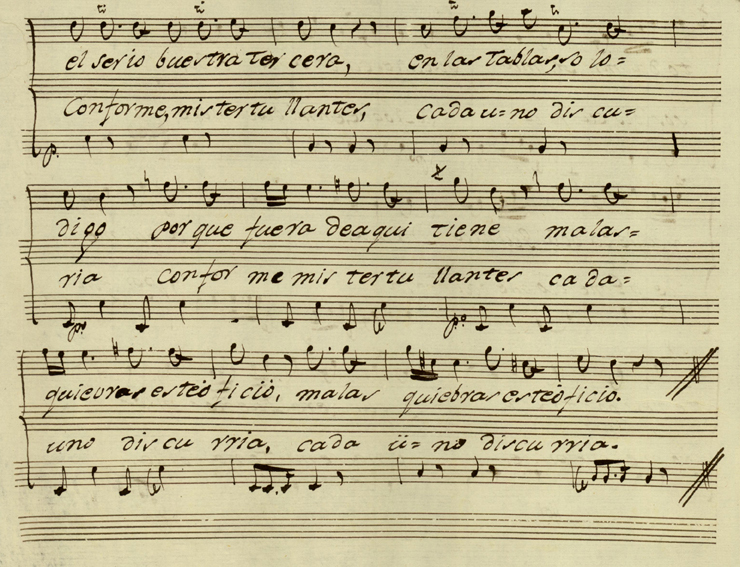 el serio buestra ter cera, en las Tablas, so lo=
Conforme, mis ter tu llantes, cada u=no dis cu=
p.
digo por que fuera de aqui tiene malas=
ria confor me mis ter tu llantes ca da=
po po
quievras es te o ficio, malas quiebras es te o ficio.
uno dis cu rria, cada ü=no discu rria.